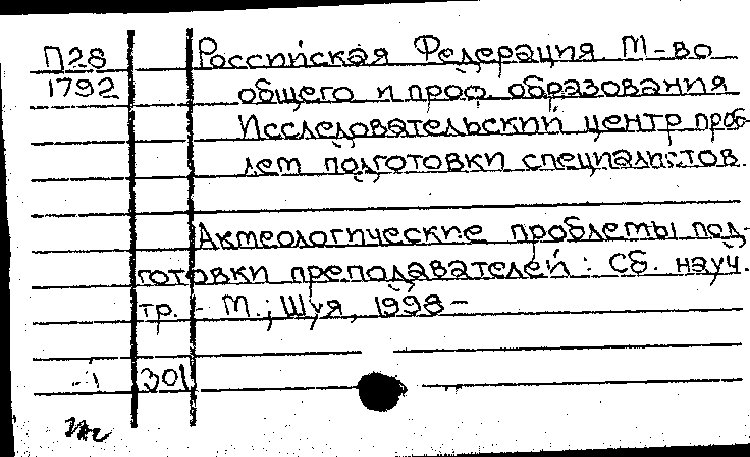 П28 Российская Федерация М-во
1792 общего и проф. образования
Исследовательский центр проб-
лем подготовки специалистов.
Акмеологические проблемы под-
готовки преподавателей: Сб. науч.
тр. - М.; Шуя, 1998-
301